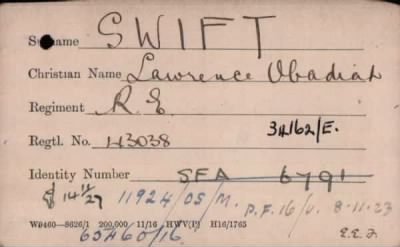 Surname SWIFT
Christian Name Lawrence Obadiah
Regiment R.E.
Regtl. No. 43038
34162/E.
Identity Number SFA 6791
14/11/27 11924/OS/M. P.F. 16/ 8-11-23
W9460—8626/1 200,000 11/16 HWV(P) H16/1765
65460/16